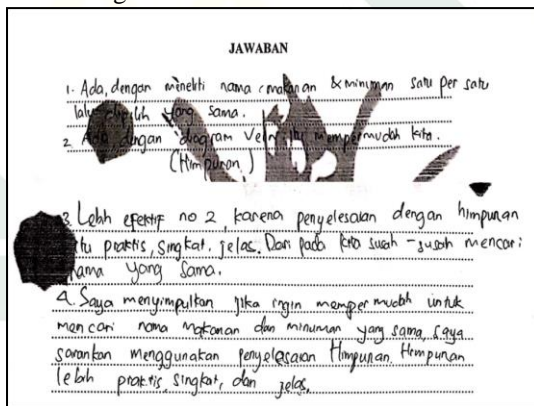 JAWABAN
1. Ada, dengan meneliti nama makanan & minuman satu per satu
lalu dipilih yang sama.
2. Ada, dengan diagram Venn itu mempermudah kita.
(Himpunan)
3. Lebih efektif no 2, karena penyelesaian dengan himpunan
itu praktis, singkat, jelas. Dari pada kita susah-susah mencari
nama yang sama.
4. Saya menyimpulkan jika ingin mempermudah untuk
mencari nama makanan dan minuman yang sama, saya
sarankan menggunakan penyelesaian Himpunan. Himpunan
lebih praktis, singkat, dan jelas.